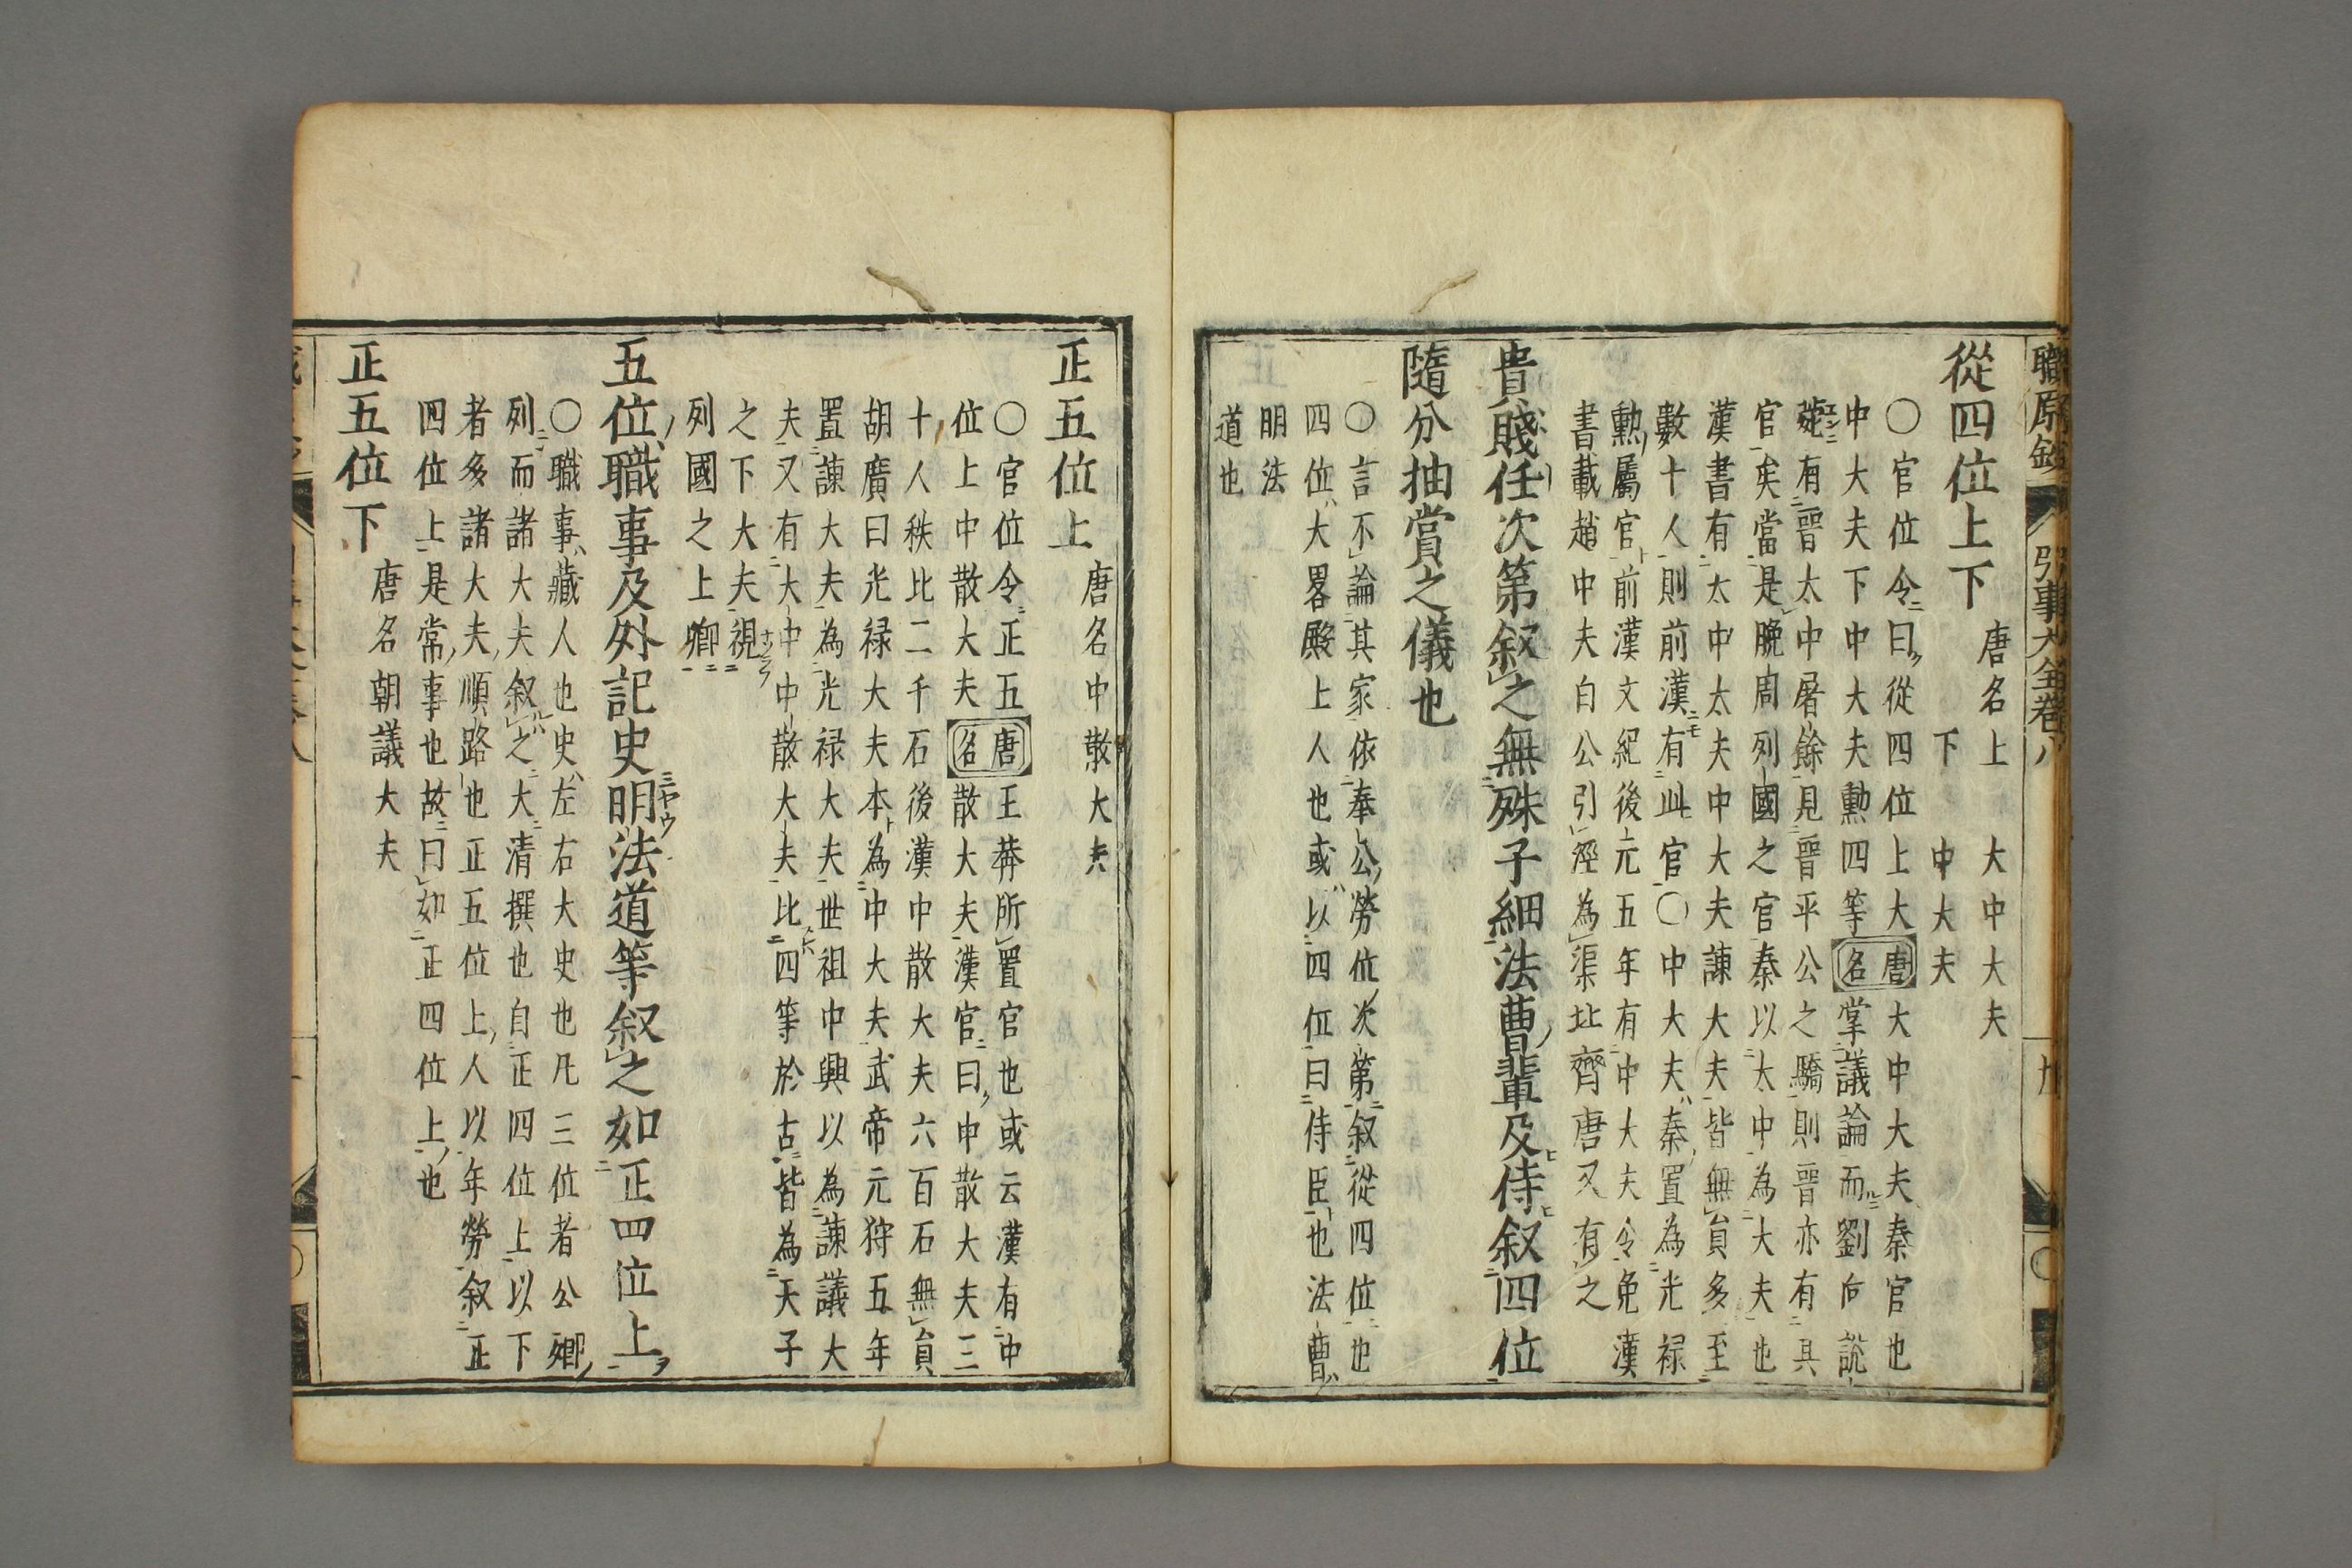 職原鈔 引事大全卷八
從四位上下 唐名上 大中大夫
下 中大夫
〇官位令曰從四位上大唐大中大夫秦官也
中大夫下中大夫勲四等名掌議論而劉向説
苑有晋太中屠餘見晋平公之驕則晋亦有其
官矣當是晩周列國之官秦以太中為大夫也
漢書有太中太夫中大夫諌大夫皆無員多至
數十人則前漢有此官〇中大夫秦置為光禄
勲屬官前漢文紀後元五年有中大夫令免漢
書載趙中夫白公引涇為渠址齊唐又有之
貴賤任次第叙之無殊子細法曹輩及侍叙四位
隨分抽賞之儀也
〇言不論其家依奉公勞位次第叙從四位也
四位大畧殿上人也或以四位曰侍臣也法曹
明法
道也
正五位上 唐名中散大夫
〇官位令正五唐王莽所置官也或云漢有中
位上中散大夫名散大夫漢官曰中散大夫三
十人秩比二千石後漢中散大夫六百石無員
胡廣曰光禄大夫本為中大夫武帝元狩五年
置諌大夫為光禄大夫世祖中興以為諌議大
夫又有大中中散大夫比四等於古皆為天子
之下大夫視
列國之上卿
五位職事及外記史明法道等叙之如正四位上
〇職事藏人也史左右大史也凡三位者公卿
列而諸大夫叙之大清撰也自正四位上以下
者多諸大夫順路也正五位上人以年勞叙正
四位上是常事也故曰如正四位上也
正五位下 唐名朝議大夫